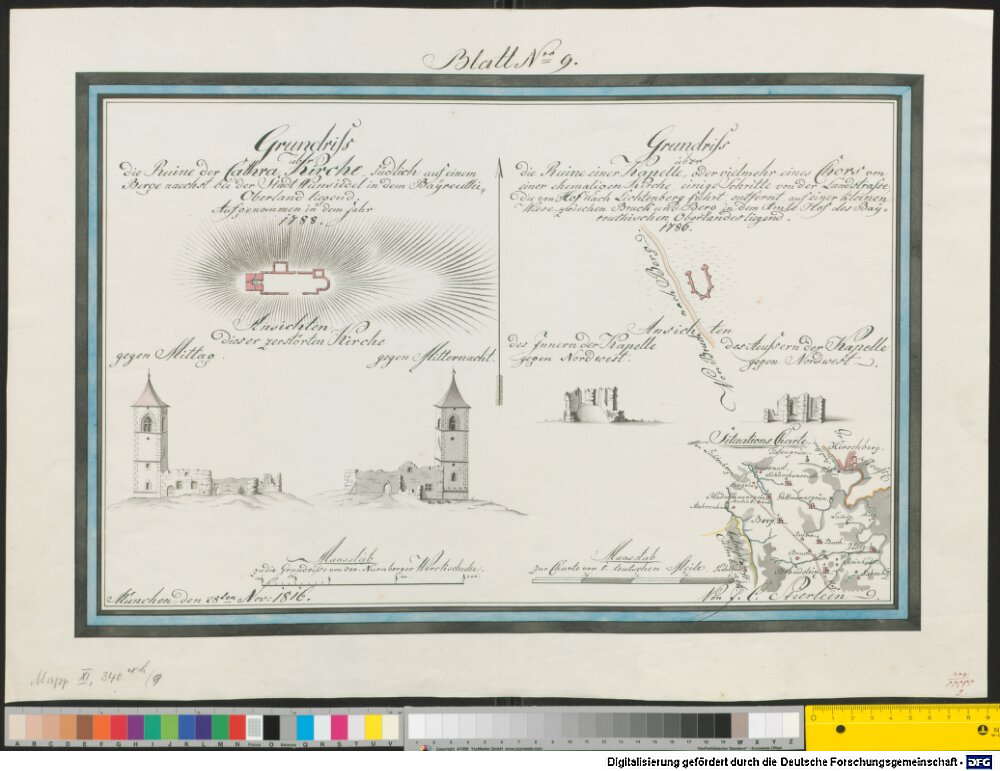 Blatt Nro 9.
Grundriſs
über
die Ruine der Cathra, Kirche, südlich auf einem
Berge naechst bei der Stadt Wunsiedel in dem Bayreuthi,
Oberland liegend.
Aufgenommen in dem Jahr
1788.
Ansichten
dieser zerstörten Kirche
gegen Mittag.
gegen Mitternacht.
Grundriſs
über
die Ruine einer Kapelle, oder vielmehr eines Chors von
einer ehemaligen Kirche, einige Schritte von der Landstraße
die von Hof nach Lichtenberg führt entfernt auf einer kleinen
Wiese zwischen Bruck und Berg in dem Amte Hof des Bay-
reuthischen Oberlandes liegend.
1786.
Von Bruck nach Berg.
Ansichten
des Innern der Kapelle
gegen Nordwest.
des Aeußern der Kapelle
gegen Nordwest.
Situations Charte
Hirschberg
Berg
Buch
Maasstab
zu die Grundriſse von 200. Nürnberger Werckschuhe.
100
200
Maasstab
zur Charte von 1. teutschen Meile.
München den 28ten Nov: 1816.
Von J. C.
Mapp XI, 340
/9
A B C D E F G H I J K L M
Focus O Balance
Q R S T U V
W X Y Z
0 1 2 3 4 5 6 7 8 9
Digitalisierung gefördert durch die Deutsche Forschungsgemeinschaft - DFG